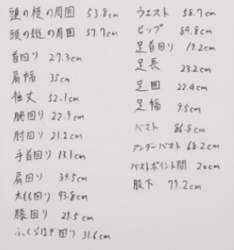 頭の横の周囲 53.8cm
頭の縦の周囲 57.7cm
首回り 27.3cm
肩幅 35cm
袖丈 52.1cm
腕回り 22.9cm
肘回り 21.2cm
手首回り 13.1cm
肩回り 34.5cm
太もも回り 43.8cm
膝回り 29.5cm
ふくらはぎ回り 31.6cm
ウエスト 58.7cm
ヒップ 84.8cm
足首回り 19.2cm
足長 23.2cm
足囲 22.4cm
足幅 9.5cm
バスト 86.8cm
アンダーバスト 68.2cm
バストポイント間 20cm
股下 79.2cm